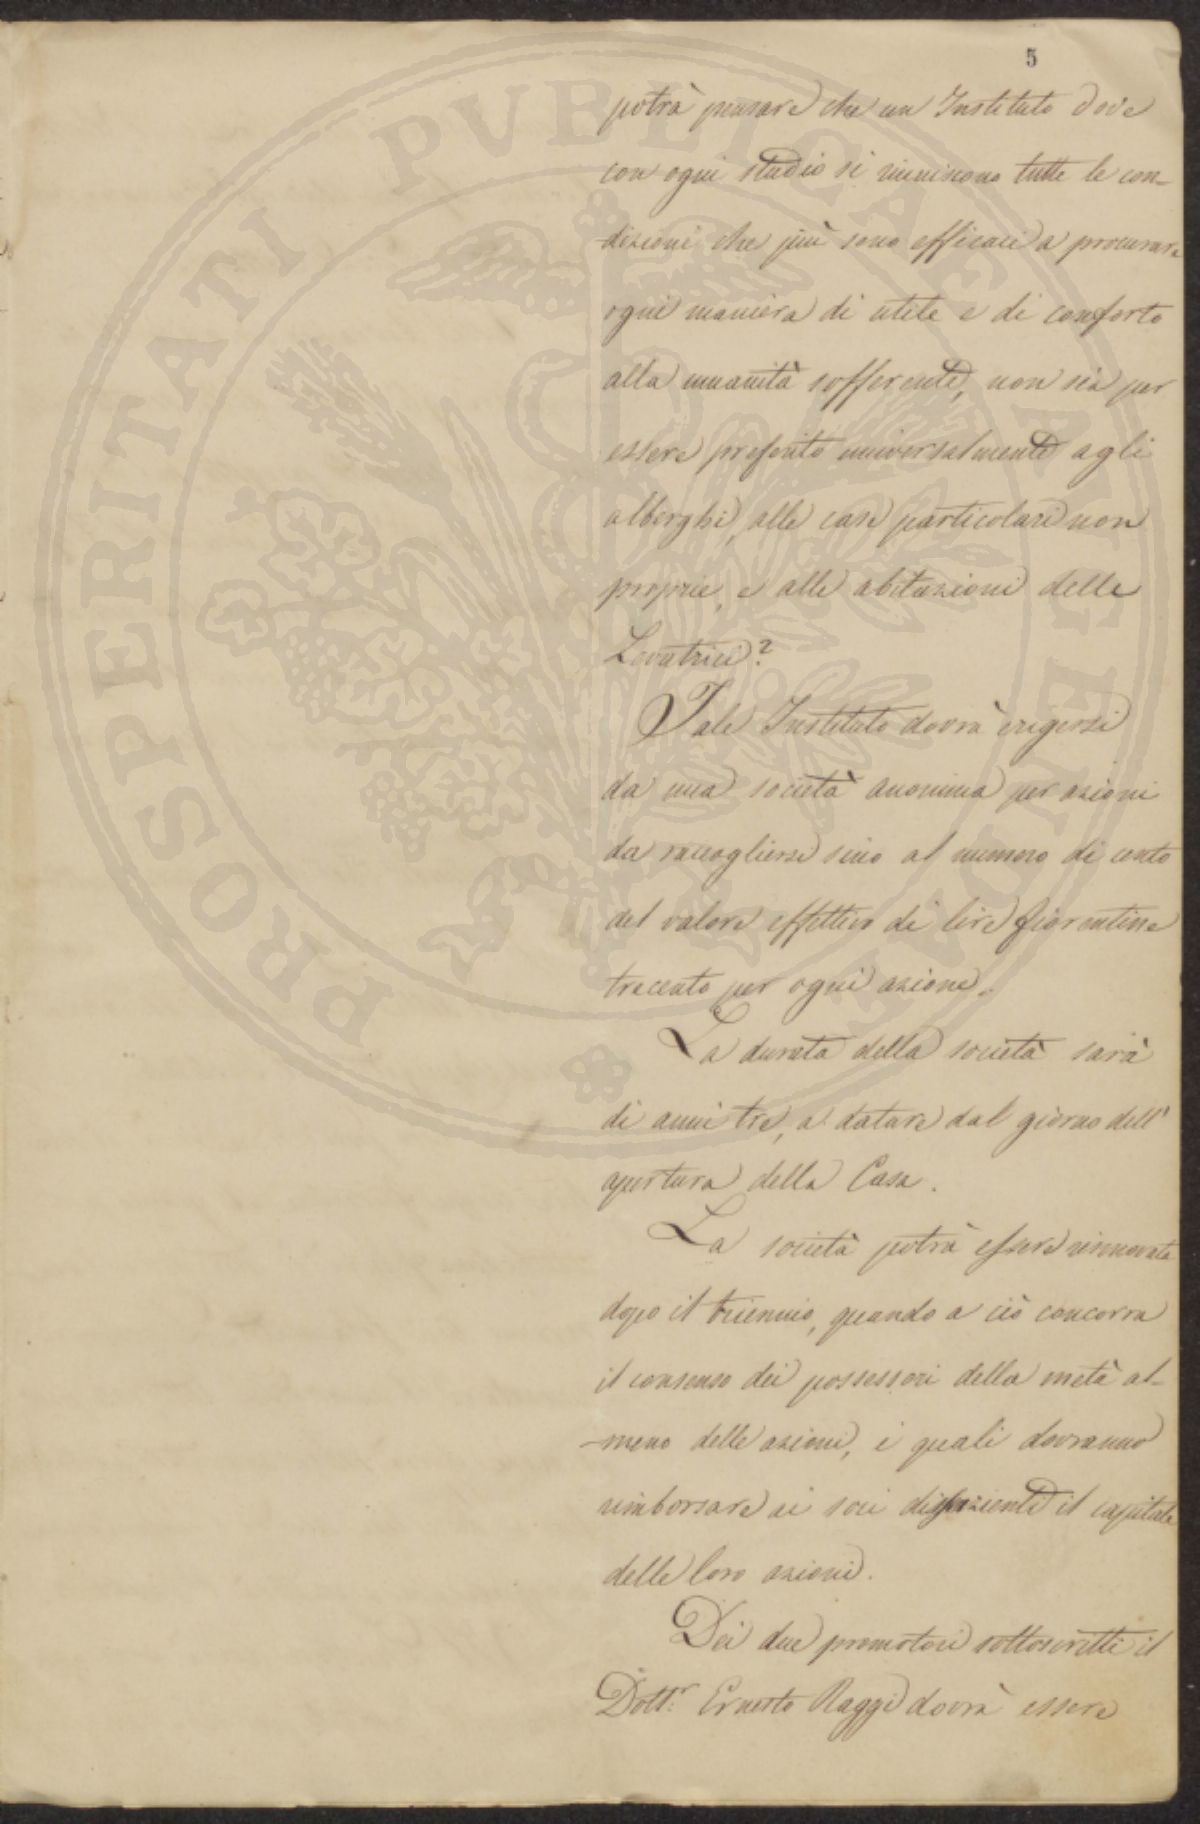 5
potrà pensare che un Instituto dove
con ogni studio si riuniscono tutte le con-
-dizioni che più sono efficaci a procurare
ogni maniera di utile e di conforto
alla umanità sofferente, non sia per
essere preferito universalmente agli
alberghi, alle case particolari non
proprie, e alle abitazioni delle
Levatrici?
Tale Instituto dovrà erigersi
da una società anonima per azioni
da raccogliersi sino al numero di cento
del valore effettivo di lire fiorentine
trecento per ogni azione.
La durata della società sarà
di anni tre, a datare dal giorno dell'
apertura della Casa.
La società potrà essere rinnovata
dopo il triennio, quando a ciò concorra
il consenso dei possessori della metà al-
-meno delle azioni, i quali dovranno
rimborsare ai soci dissenzienti il capitale
delle loro azioni.
Dei due promotori sottoscritti il
Dott.r Ernesto Raggi dovrà essere
PROSPERITATI PUBLICAE AUGENDAE